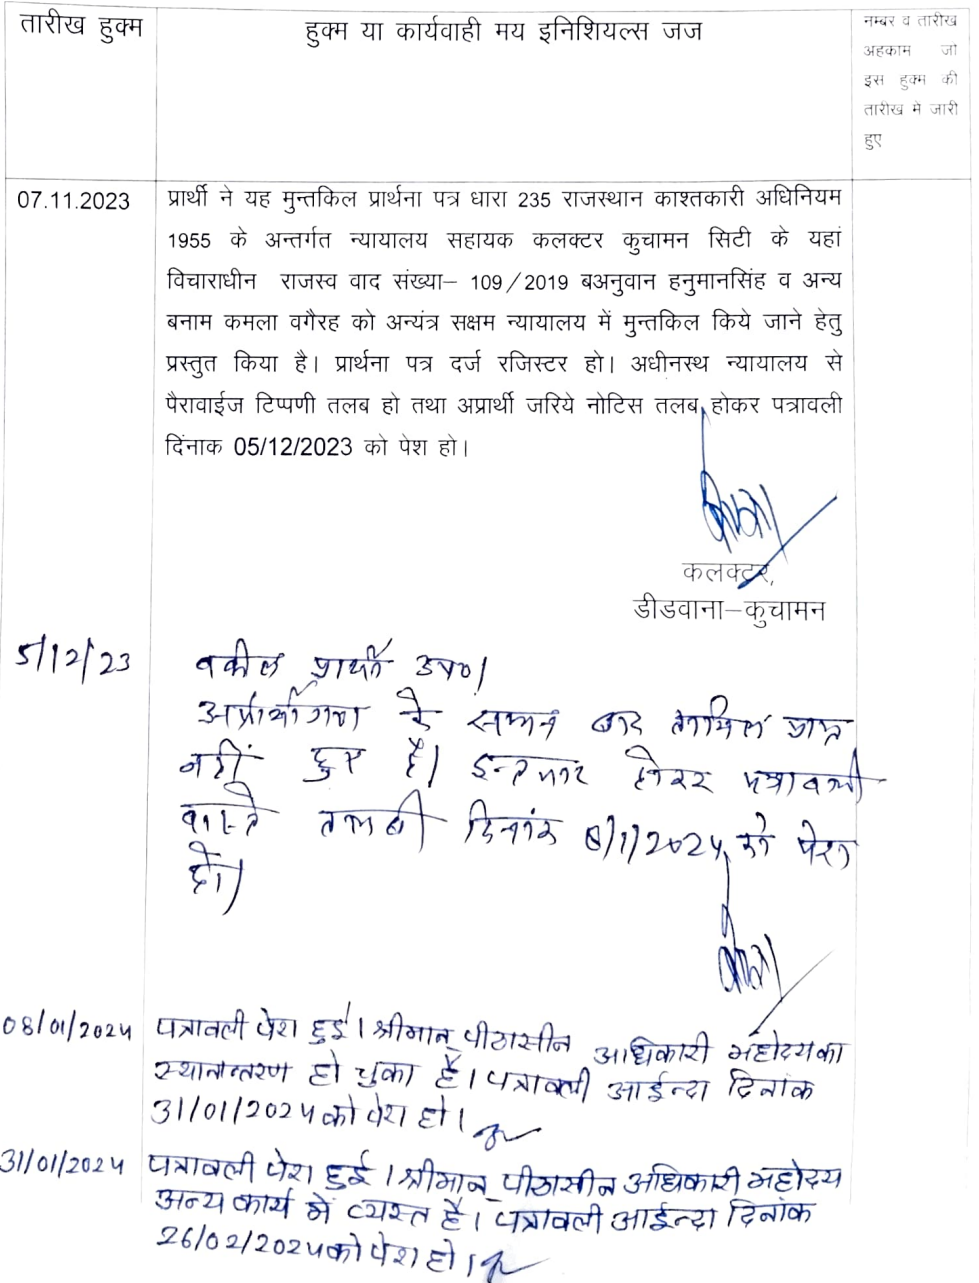 तारीख हुक्म
हुक्म या कार्यवाही मय इनिशियल्स जज
नम्बर व तारीख
अहकाम जो
इस हुक्म की
तारीख मे जारी
हुए
07.11.2023
प्रार्थी ने यह मुन्तकिल प्रार्थना पत्र धारा 235 राजस्थान काश्तकारी अधिनियम
1955 के अन्तर्गत न्यायालय सहायक कलक्टर कुचामन सिटी के यहां
विचाराधीन राजस्व वाद संख्या– 109/2019 बअनुवान हनुमानसिंह व अन्य
बनाम कमला वगैरह को अन्यंत्र सक्षम न्यायालय में मुन्तकिल किये जाने हेतु
प्रस्तुत किया है। प्रार्थना पत्र दर्ज रजिस्टर हो। अधीनस्थ न्यायालय से
पैरावाईज टिप्पणी तलब हो तथा अप्रार्थी जरिये नोटिस तलब होकर पत्रावली
दिंनाक 05/12/2023 को पेश हो।
कलक्टर,
डीडवाना–कुचामन
5/12/23
वकील प्रार्थी उप०।
अप्रार्थीगण के सम्मन बाद तामिल प्राप्त
नहीं हुए है। इन्तजार होकर पत्रावली
वास्ते तलबी दिनांक 8/1/2024 को पेश
हो।
08/01/2024
पत्रावली पेश हुई। श्रीमान् पीठासीन अधिकारी महोदय का
स्थानान्तरण हो चुका है। पत्रावली आईन्दा दिनांक
31/01/2024 को पेश हो।
31/01/2024
पत्रावली पेश हुई। श्रीमान् पीठासीन अधिकारी महोदय
अन्य कार्य में व्यस्त है। पत्रावली आईन्दा दिनांक
26/02/2024 को पेश हो।